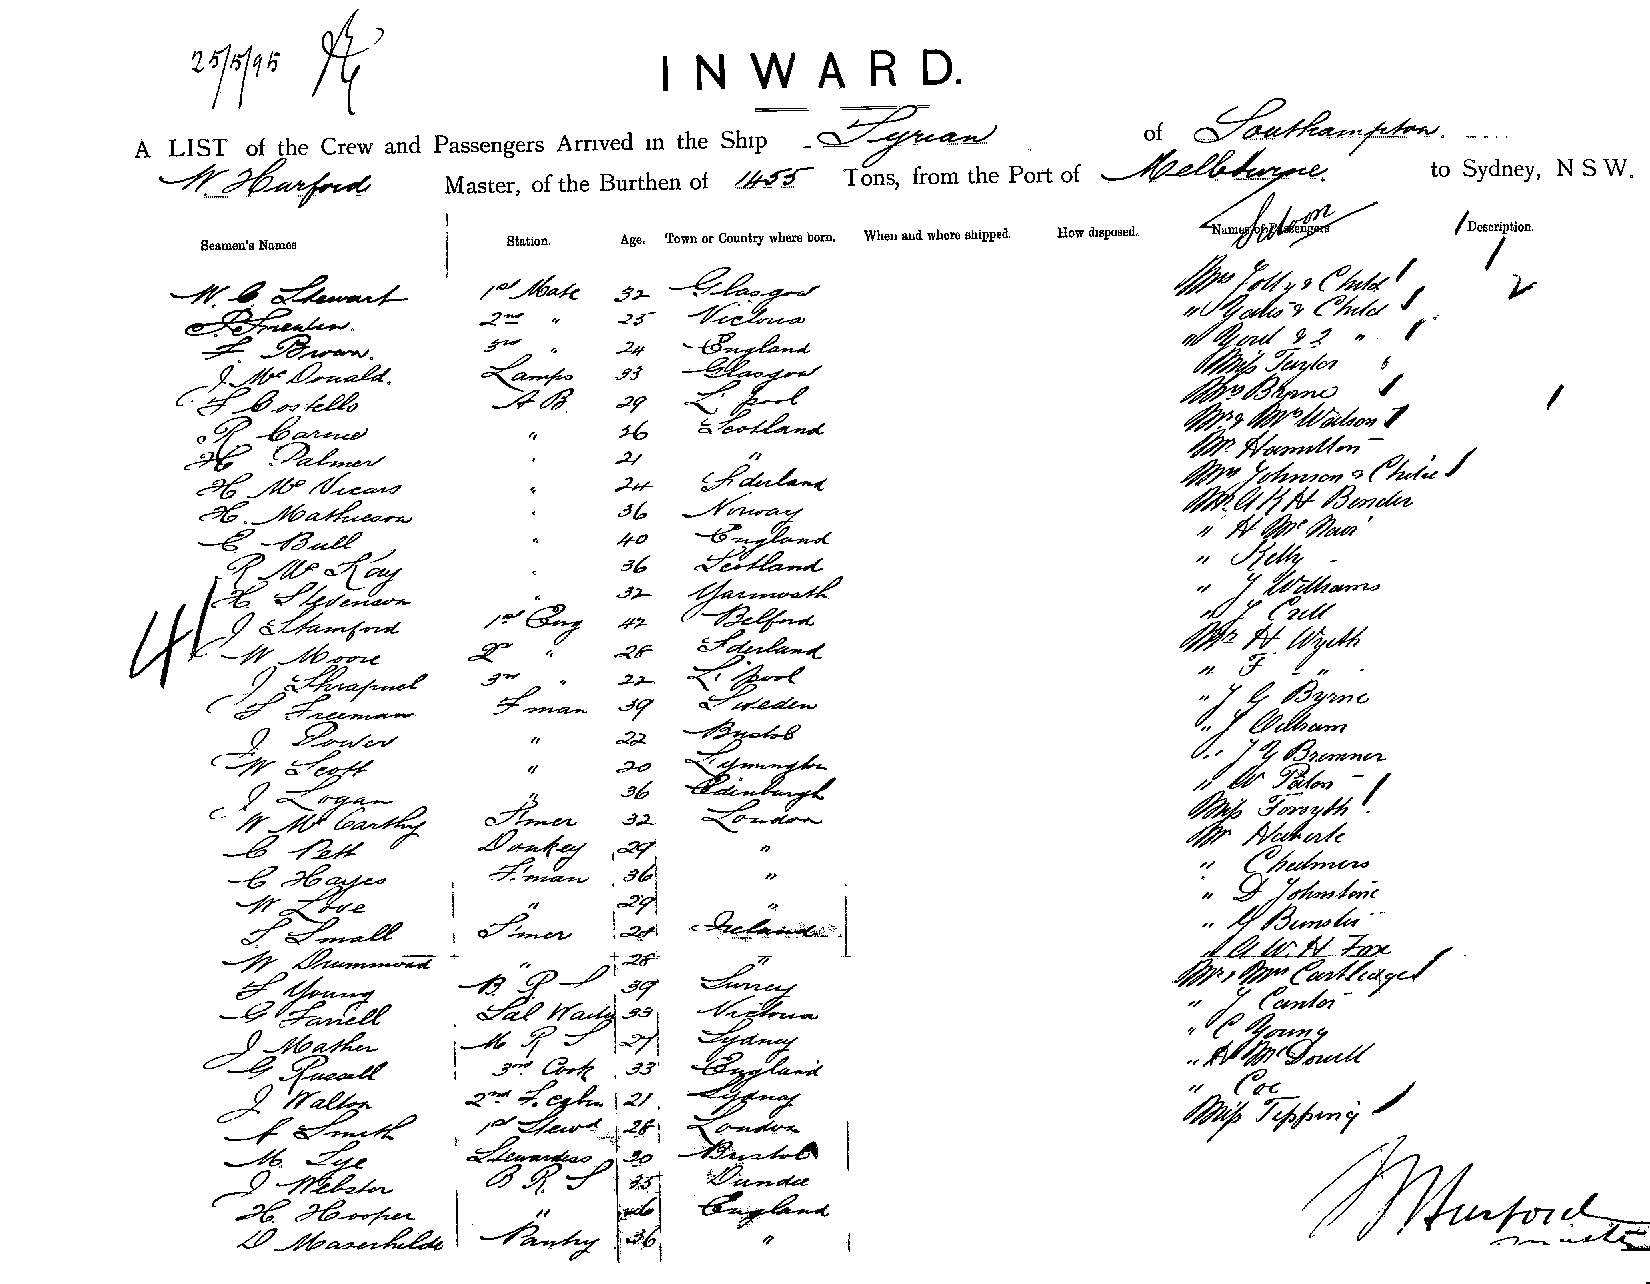 25/5/95
INWARD.
A LIST of the Crew and Passengers Arrived in the Ship Syrian of Southampton.
W Hurford Master, of the Burthen of 1455 Tons, from the Port of Melbourne to Sydney, N S W.
Seamen's Names Station. Age. Town or Country where born. When and where shipped. How disposed. Names of Passengers Saloon Description.
W. C. Stewart 1st Mate 32 Glasgow
2nd " 25 Victoria
F. Brown. 3rd " 24 England
J McDonald. Lamps 33 Glasgow
F Costello A B. 29 L'pool
R Carine " 26 Scotland
H Palmer " 21 "
H McVicars " 24 S'derland
H. Mathieson " 36 Norway
C Bull " 40 England
R McKay " 36 Scotland
H Stevenson " 32 Yarmouth
J Stamford 1st Eng 42 Belford
W Moore 2nd " 28 S'derland
J Shrapnel 3rd " 22 L'pool
S Freeman F'man 39 Sweden
J Power " 22 Bristol
W Scott " 20 Lymington
J Logan " 36 Edinburgh
W McCarthy S'mer 32 London
C Pett Donkey 29 "
C Hayes F'man 36 "
W Love " 29 "
S Small S'mer 21 Ireland
W Drummond " 28 "
F Young B. R S 39 Surrey
G Farrell Sal Waity 33 Victoria
J Mather M R S 27 Sydney
G Russell 3rd Cook 33 England
J Walton 2nd 21 Sydney
A Smith 1st Stewd 28 London
M. Lye Stewardess 30 Bristol
J Webster B R. S 35 Dundee
H. Hooper " England
D Maserhilde Pantry 36 "
41
Mrs Jolly & Child
" Yates & Child
" & 2 "
Miss Taylor
Mrs Byrne
Mr & Mrs Watson
Mr Hamilton
Mrs Johnson & Child
Mr. A K H Bender
" H McNair
" Kelly
" J Williams
" J Crell
Mr H Wyeth
" F "
" J G Byrne
" J William
" J G Bremner
" W Paton
Miss Forsyth
Mr
" Chalmers
" D Johnstone
"
" A W. H Fox
Mr & Mrs Cartledge
" J Cantor
" C Young
" H McDowell
" Coe
Miss Tipping
W Hurford
Master